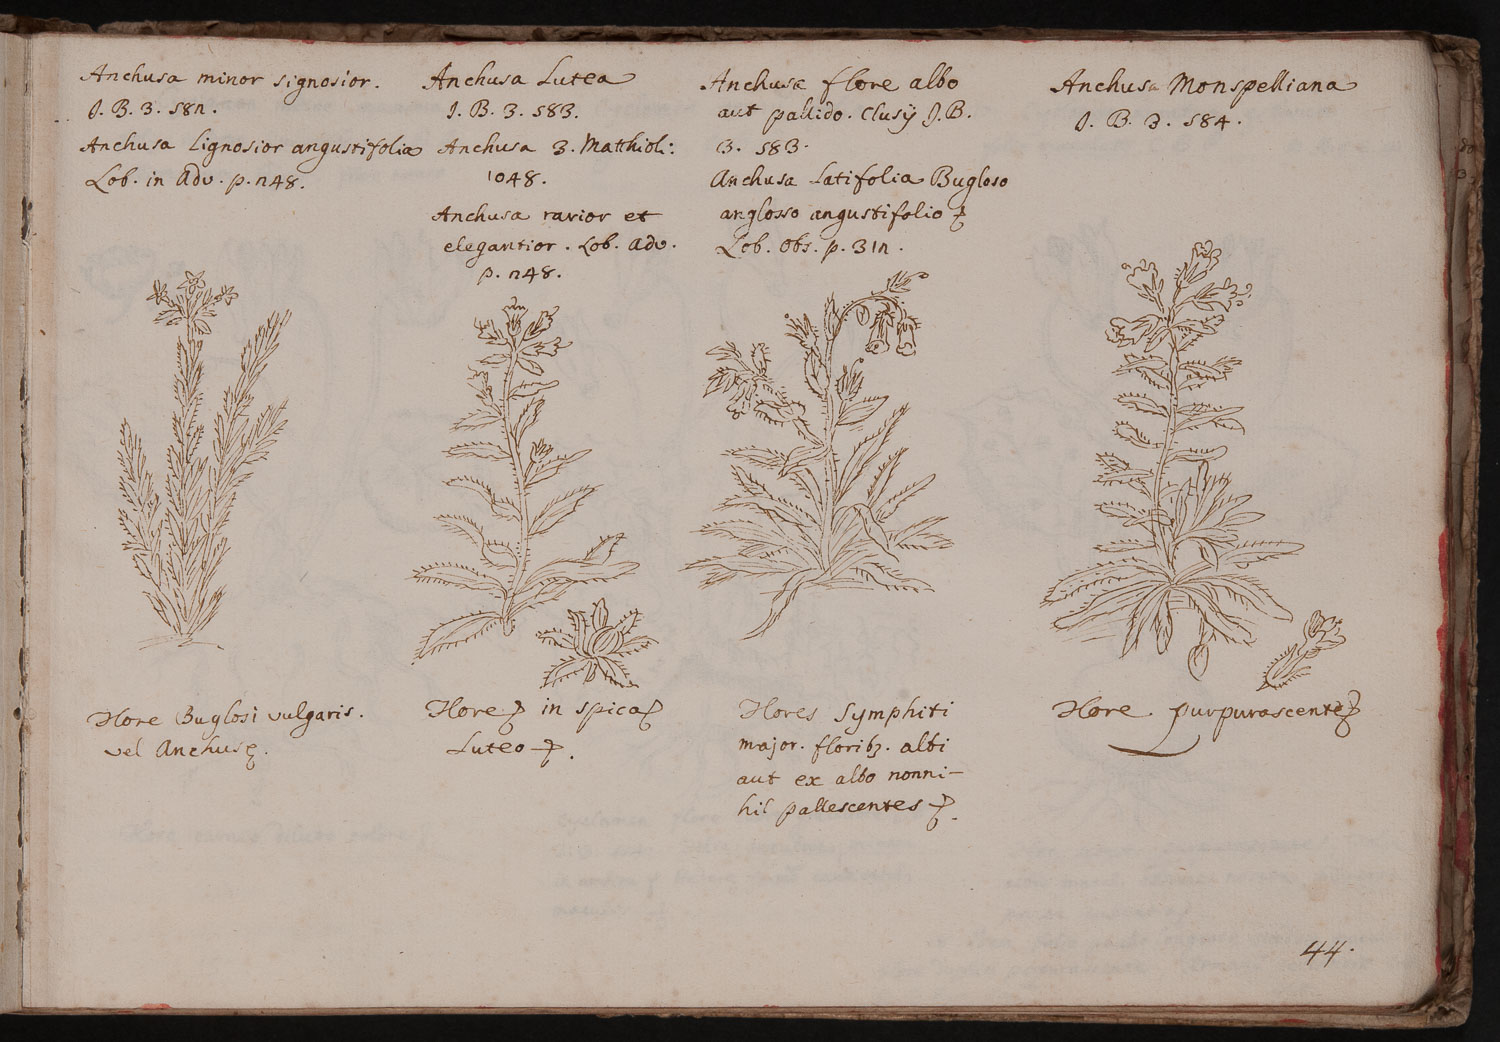 Anchusa minor signosior.
J. B. 3. 58n.
Anchusa Lignosior angustifolia
Lob. in Adv. p. n48.
Anchusa Lutea
J. B. 3. 583.
Anchusa 3. Matthioli:
1048.
Anchusa rarior et
elegantior. Lob. Adv.
p. n48.
Anchusa flore albo
aut pallido. Clusÿ J.B.
3. 583.
Anchusa Latifolia Bugloso
anglosso angustifolio
Lob. Obs. p. 31n.
Anchusa Monspelliana
J. B. 3. 584.
Flore Buglosi vulgaris.
vel Anchusę.
Flore in spica
Luteo
Flores Symphiti
major. floribz. albi
aut ex albo nonni-
hil pallescentes
Flore purpurascente
44.